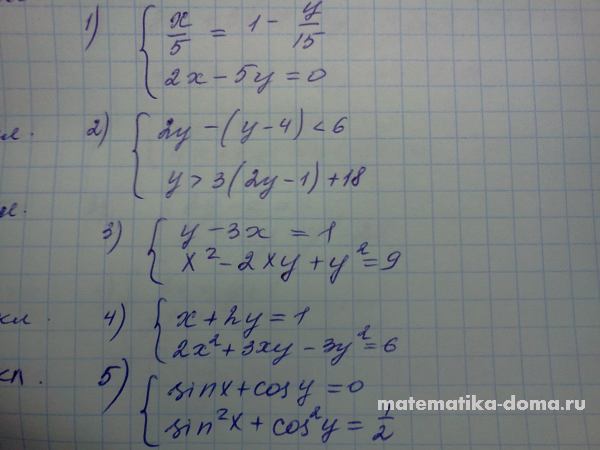 1) { x/5 = 1 - y/15
2x - 5y = 0
2) { 2y - (y - 4) < 6
y > 3(2y - 1) + 18
3) { y - 3x = 1
x² - 2xy + y² = 9
кл. 4) { x + 2y = 1
2x² + 3xy - 3y² = 6
5) { sinx + cosy = 0
sin²x + cos²y = 1/2
matematika-doma.ru